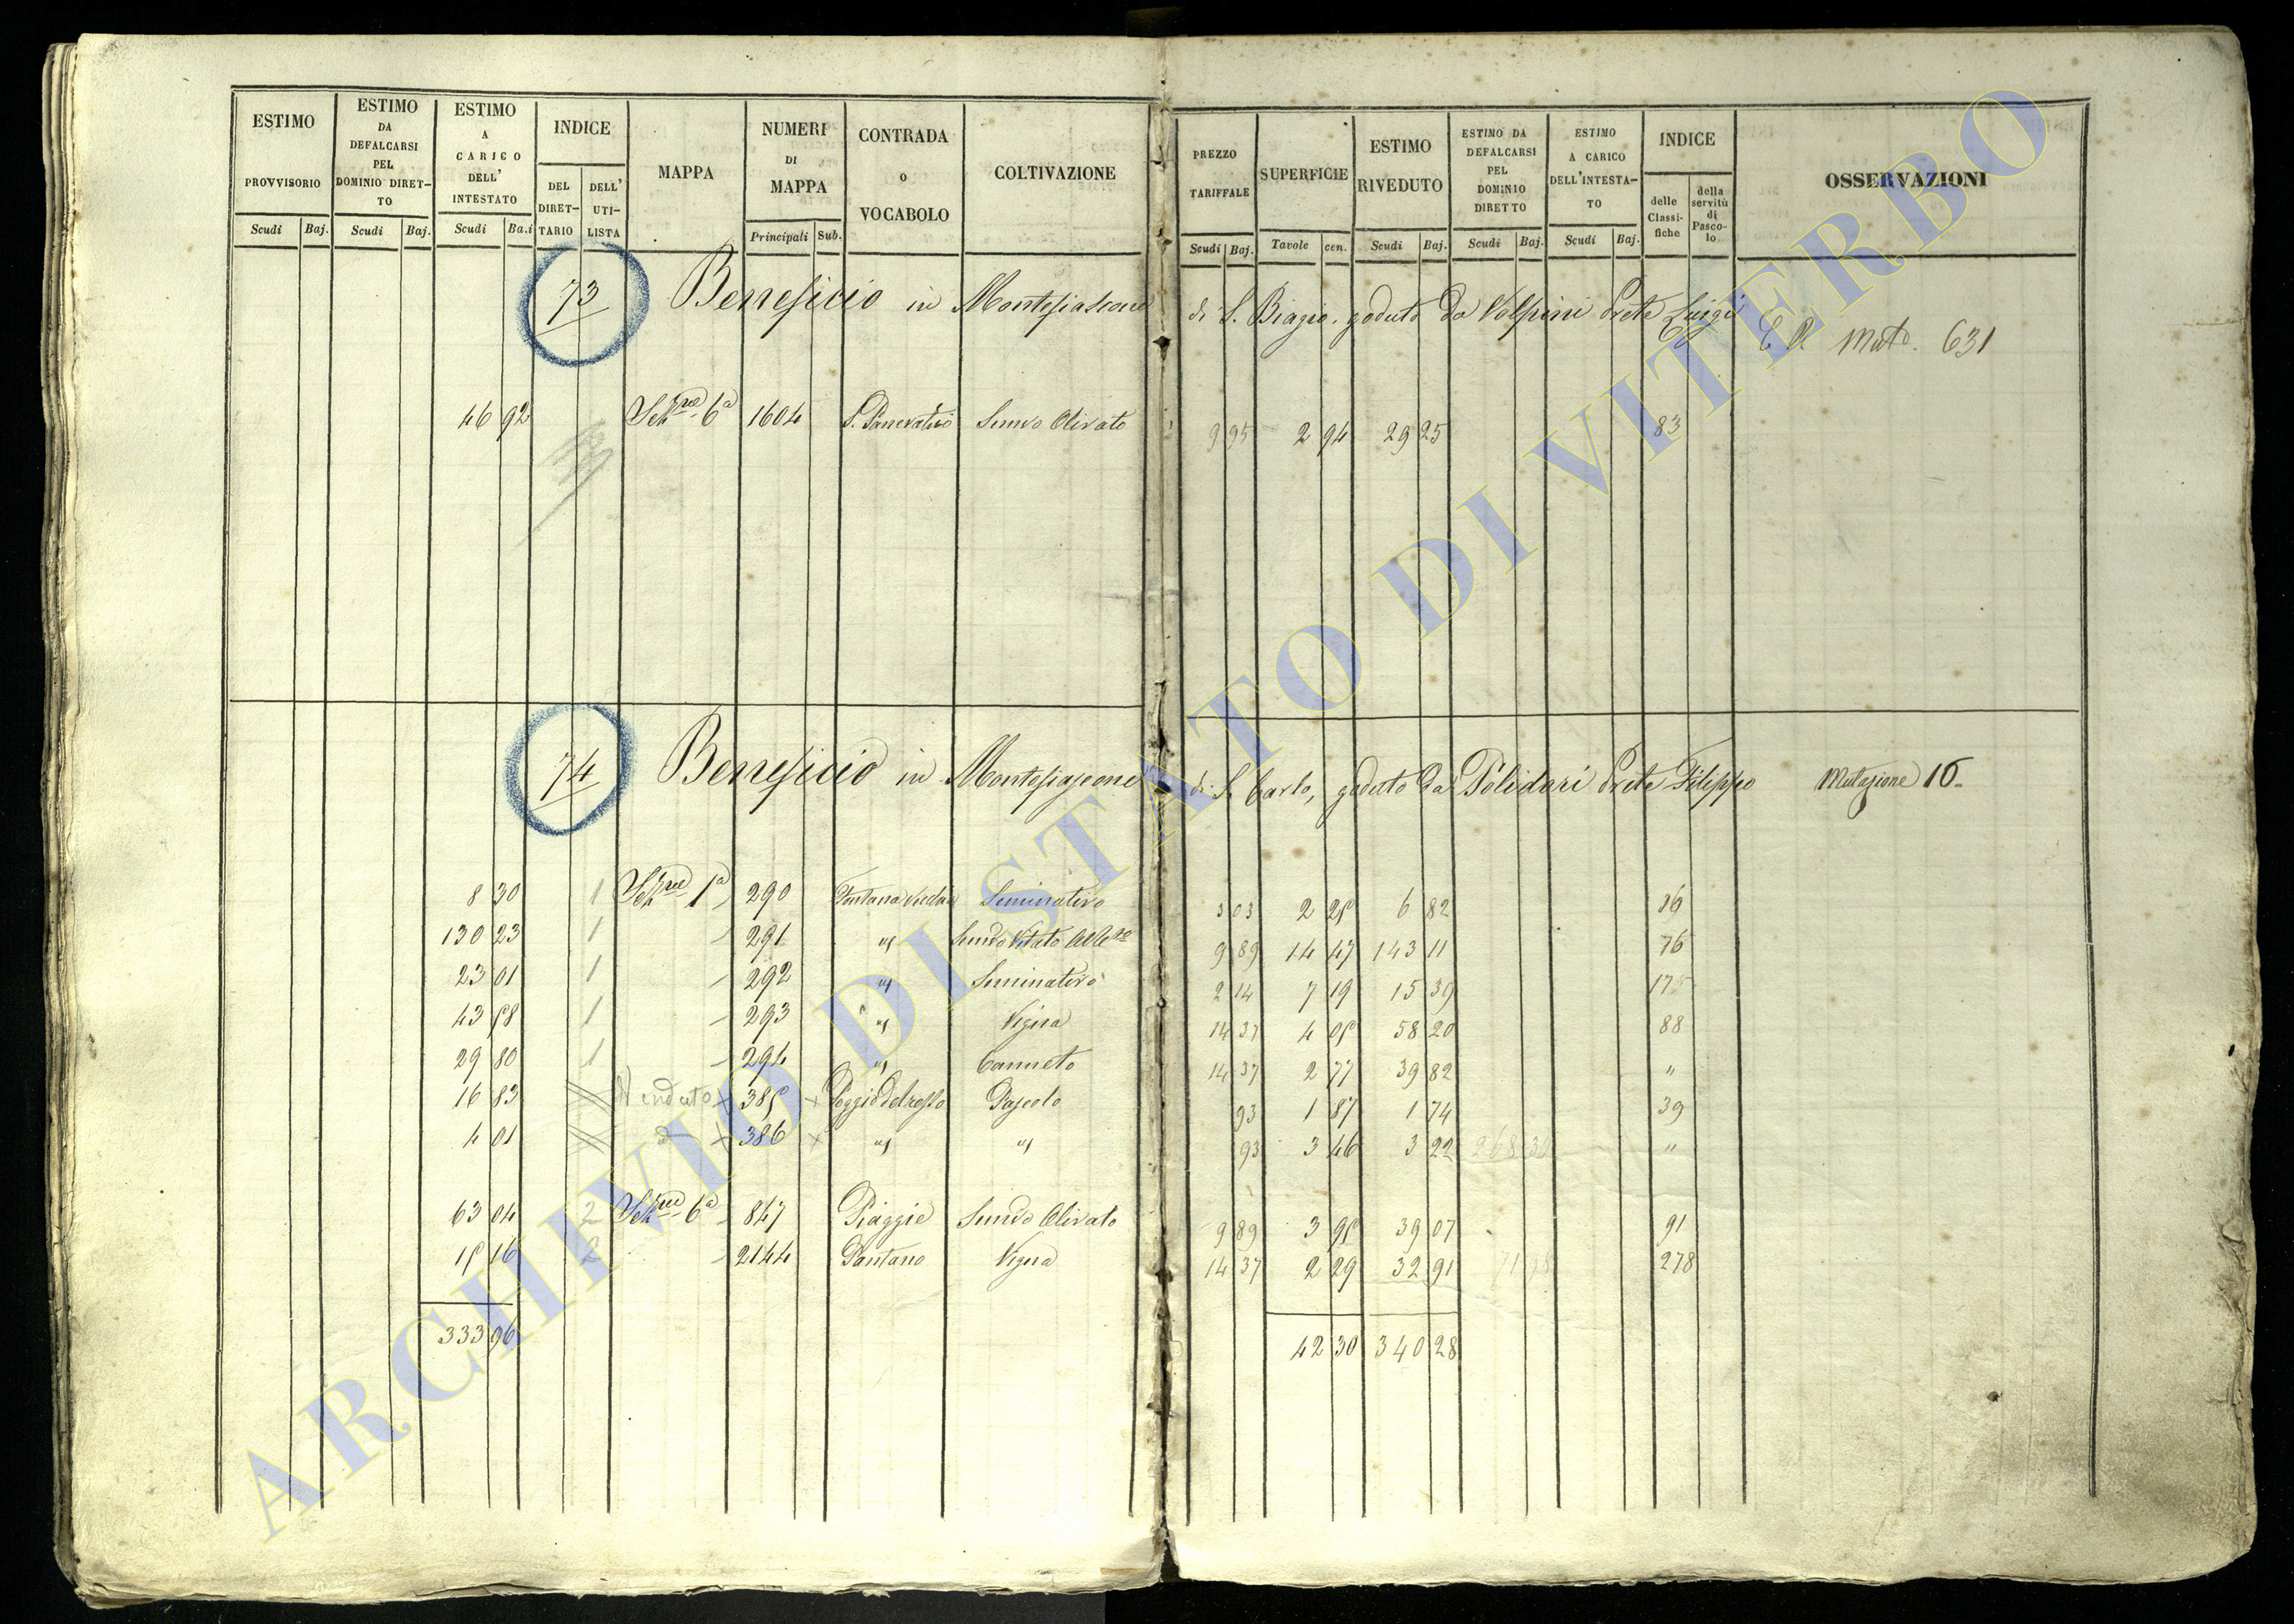 ESTIMO PROVVISORIO Scudi Baj.
ESTIMO DA DEFALCARSI PEL DOMINIO DIRET-TO Scudi Baj.
ESTIMO A CARICO DELL' INTESTATO Scudi Ba.i
INDICE DEL DIRET-TARIO DELL' UTI-LISTA
MAPPA
NUMERI DI MAPPA Principali Sub.
CONTRADA O VOCABOLO
COLTIVAZIONE
PREZZO TARIFFALE Scudi Baj.
SUPERFICIE Tavole cen.
ESTIMO RIVEDUTO Scudi Baj.
ESTIMO DA DEFALCARSI PEL DOMINIO DIRETTO Scudi Baj.
ESTIMO A CARICO DELL'INTESTA-TO Scudi Baj.
INDICE delle Classi-fiche della servitù di Pasco-lo
OSSERVAZIONI
73 Beneficio in Montefiascone di S. Biagio, goduto da Volpini Prete Luigi
Mut. 631
46 92 Sez. 6a 1604 S. Pancrazio Semvo Olivato 9 95 2 94 29 25 83
74 Beneficio in Montefiascone di S. Carlo, goduto da Polidori Prete Filippo Mutazione 16
8 30 1 Sez. 1a 290 Seminativo 3 03 2 25 6 82 16
130 23 1 291 " Semvo Vitato 9 89 14 47 143 11 76
23 01 1 292 " Seminativo 2 14 7 19 15 39 175
43 58 1 293 " Vigna 14 37 4 05 58 20 88
29 80 1 294 " Canneto 14 37 2 77 39 82 "
16 83 Venduto 385 Poggio del rosso Pascolo 93 1 87 1 74 39
4 01 386 " " 93 3 46 3 22 268 30 "
63 04 2 Sez. 6a 847 Piaggie Semvo Olivato 9 89 3 95 39 07 91
15 16 2 2144 Pantano Vigna 14 37 2 29 32 91 71 98 278
333 96 42 30 340 28
ARCHIVIO DI STATO DI VITERBO